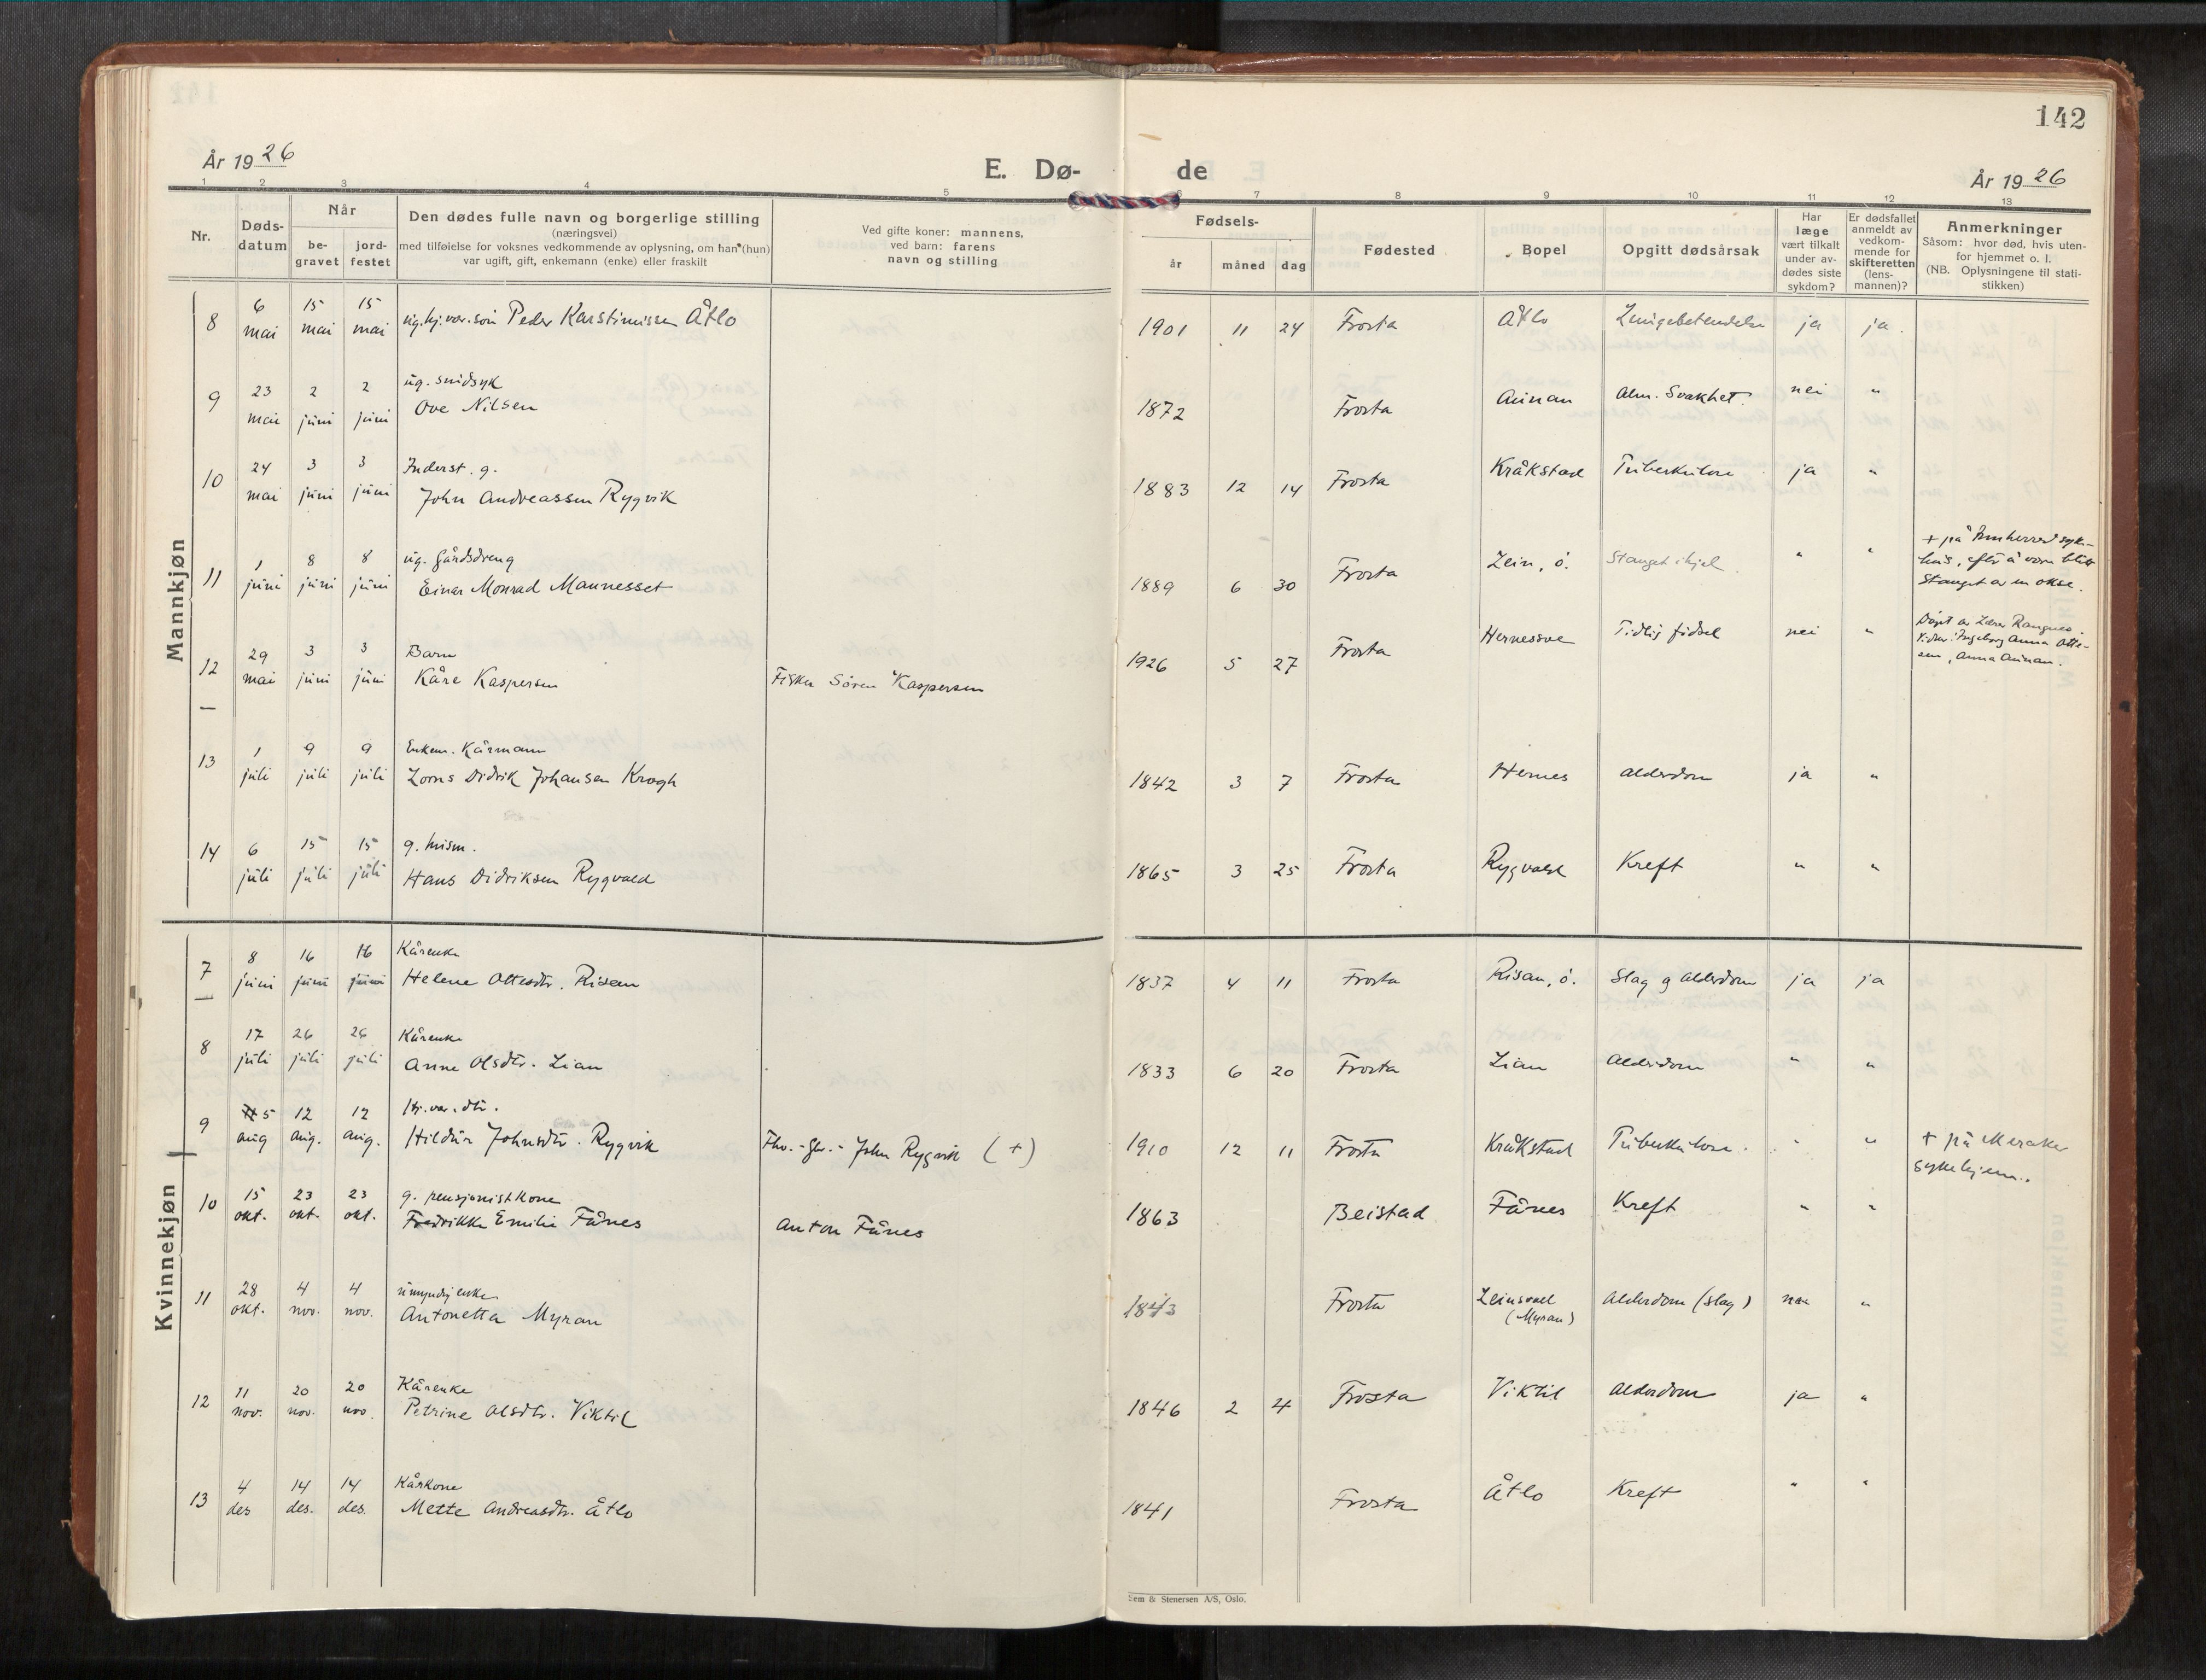 142
År 1926
E. Dø-
de
År 1926
1 2 3 4 5 6 7 8 9 10 11 12 13
Nr.
Døds-
datum
Når
be-
gravet
jord-
festet
Den dødes fulle navn og borgerlige stilling
(næringsvei)
med tilføielse for voksnes vedkommende av oplysning, om han (hun)
var ugift, gift, enkemann (enke) eller fraskilt
Ved gifte koner: mannens,
ved barn: farens
navn og stilling
Fødsels-
år måned dag
Fødested
Bopel
Opgitt dødsårsak
Har
læge
vært tilkalt
under av-
dødes siste
sykdom?
Er dødsfallet
anmeldt av
vedkom-
mende for
skifteretten
(lens-
mannen)?
Anmerkninger
Såsom: hvor død, hvis uten-
for hjemmet o. l.
(NB. Oplysningene til stati-
stikken)
Mannkjøn
8 6 mai 15 mai 15 mai ug. hj. vær. søn Peder Karstinussen Åtlo 1901 11 24 Frosta Åtlo Lungebetendelse ja ja
9 23 mai 2 juni 2 juni ug. sindsyk
Ove Nilsen 1872 Frosta Aunan Alm. Svakhet. nei "
10 24 mai 3 juni 3 juni Inderst. g.
John Andreassen Rygvik 1883 12 14 Frosta Kråkstad Tuberkulose ja "
11 1 juni 8 juni 8 juni ug. Gårdsdreng
Einar Monrad Mannesset 1889 6 30 Frosta Lein, ö. Stanget ihjel. " "
+ på Innherred syke-
hus, efter å være blitt
Stanget av en okse.
12 29 mai 3 juni 3 juni Barn
Kåre Kaspersen Fisker Sören Kaspersen 1926 5 27 Frosta Hernessve Tidlig födsel nei "
Döpt av Lærer Rangnes.
Vidner: Ingeborg Anna Otte-
sen, Anna Aunan.
13 1 juli 9 juli 9 juli Enkem. Kårmann
Lorns Didrik Johansen Krogh 1842 3 7 Frosta Hernes Alderdom ja "
14 6 juli 15 juli 15 juli g. husm.
Hans Didriksen Rygvald 1865 3 25 Frosta Rygvald Kreft " "
Kvinnekjøn
7 8 juni 16 juni 16 juni Kårenke
Helene Ottesdtr. Risan 1837 4 11 Frosta Risan, ö. Slag og Alderdom ja ja
8 17 juli 26 juli 26 juli Kårenke
Anne Olsdtr. Lian 1833 6 20 Frosta Lian Alderdom " "
9 5 aug 12 aug. 12 aug. Hj. vær. dtr.
Hildur Johnsdtr. Rygvik John Rygvik (+) 1910 12 11 Frosta Kråkstad Tuberkulose. " "
+ på Meraker
sykehjem.
10 15 okt. 23 okt. 23 okt. g. pensjonistkone
Fredrikke Emilie Fånes Anton Fånes 1863 Beistad Fånes Kreft " "
11 28 okt. 4 nov. 4 nov.
Antonetta Myran 1843 Frosta Leinsvald
(Myran) Alderdom (slag) "
12 11 nov. 20 nov. 20 nov. Kårenke
Petrine Olsdtr. Viktil 1846 2 4 Frosta Viktil Alderdom ja "
13 4 des 14 des. 14 des. Kårkone
Mette Andreasdtr. Åtlo 1841 Frosta Åtlo Kreft " "
Sem & Stenersen A/S, Oslo.